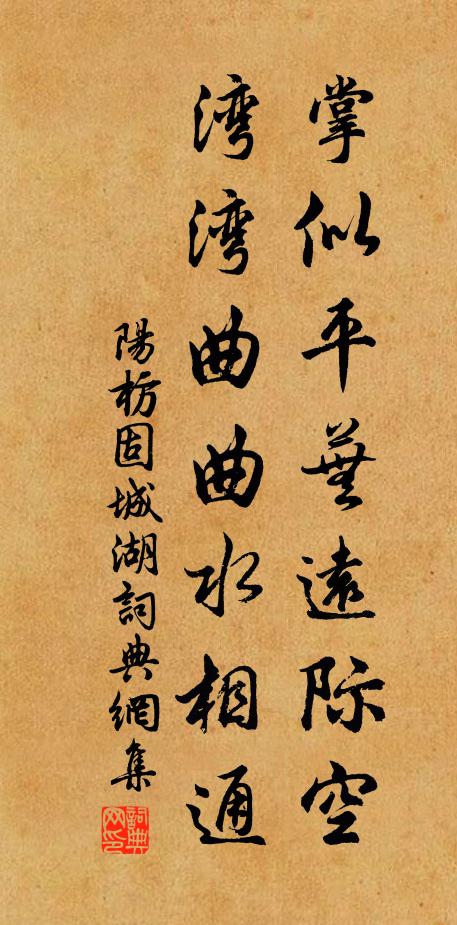 掌似平蕪遠际空
湾湾曲曲水相通
陽枋固城湖詞典網集
詞典网印